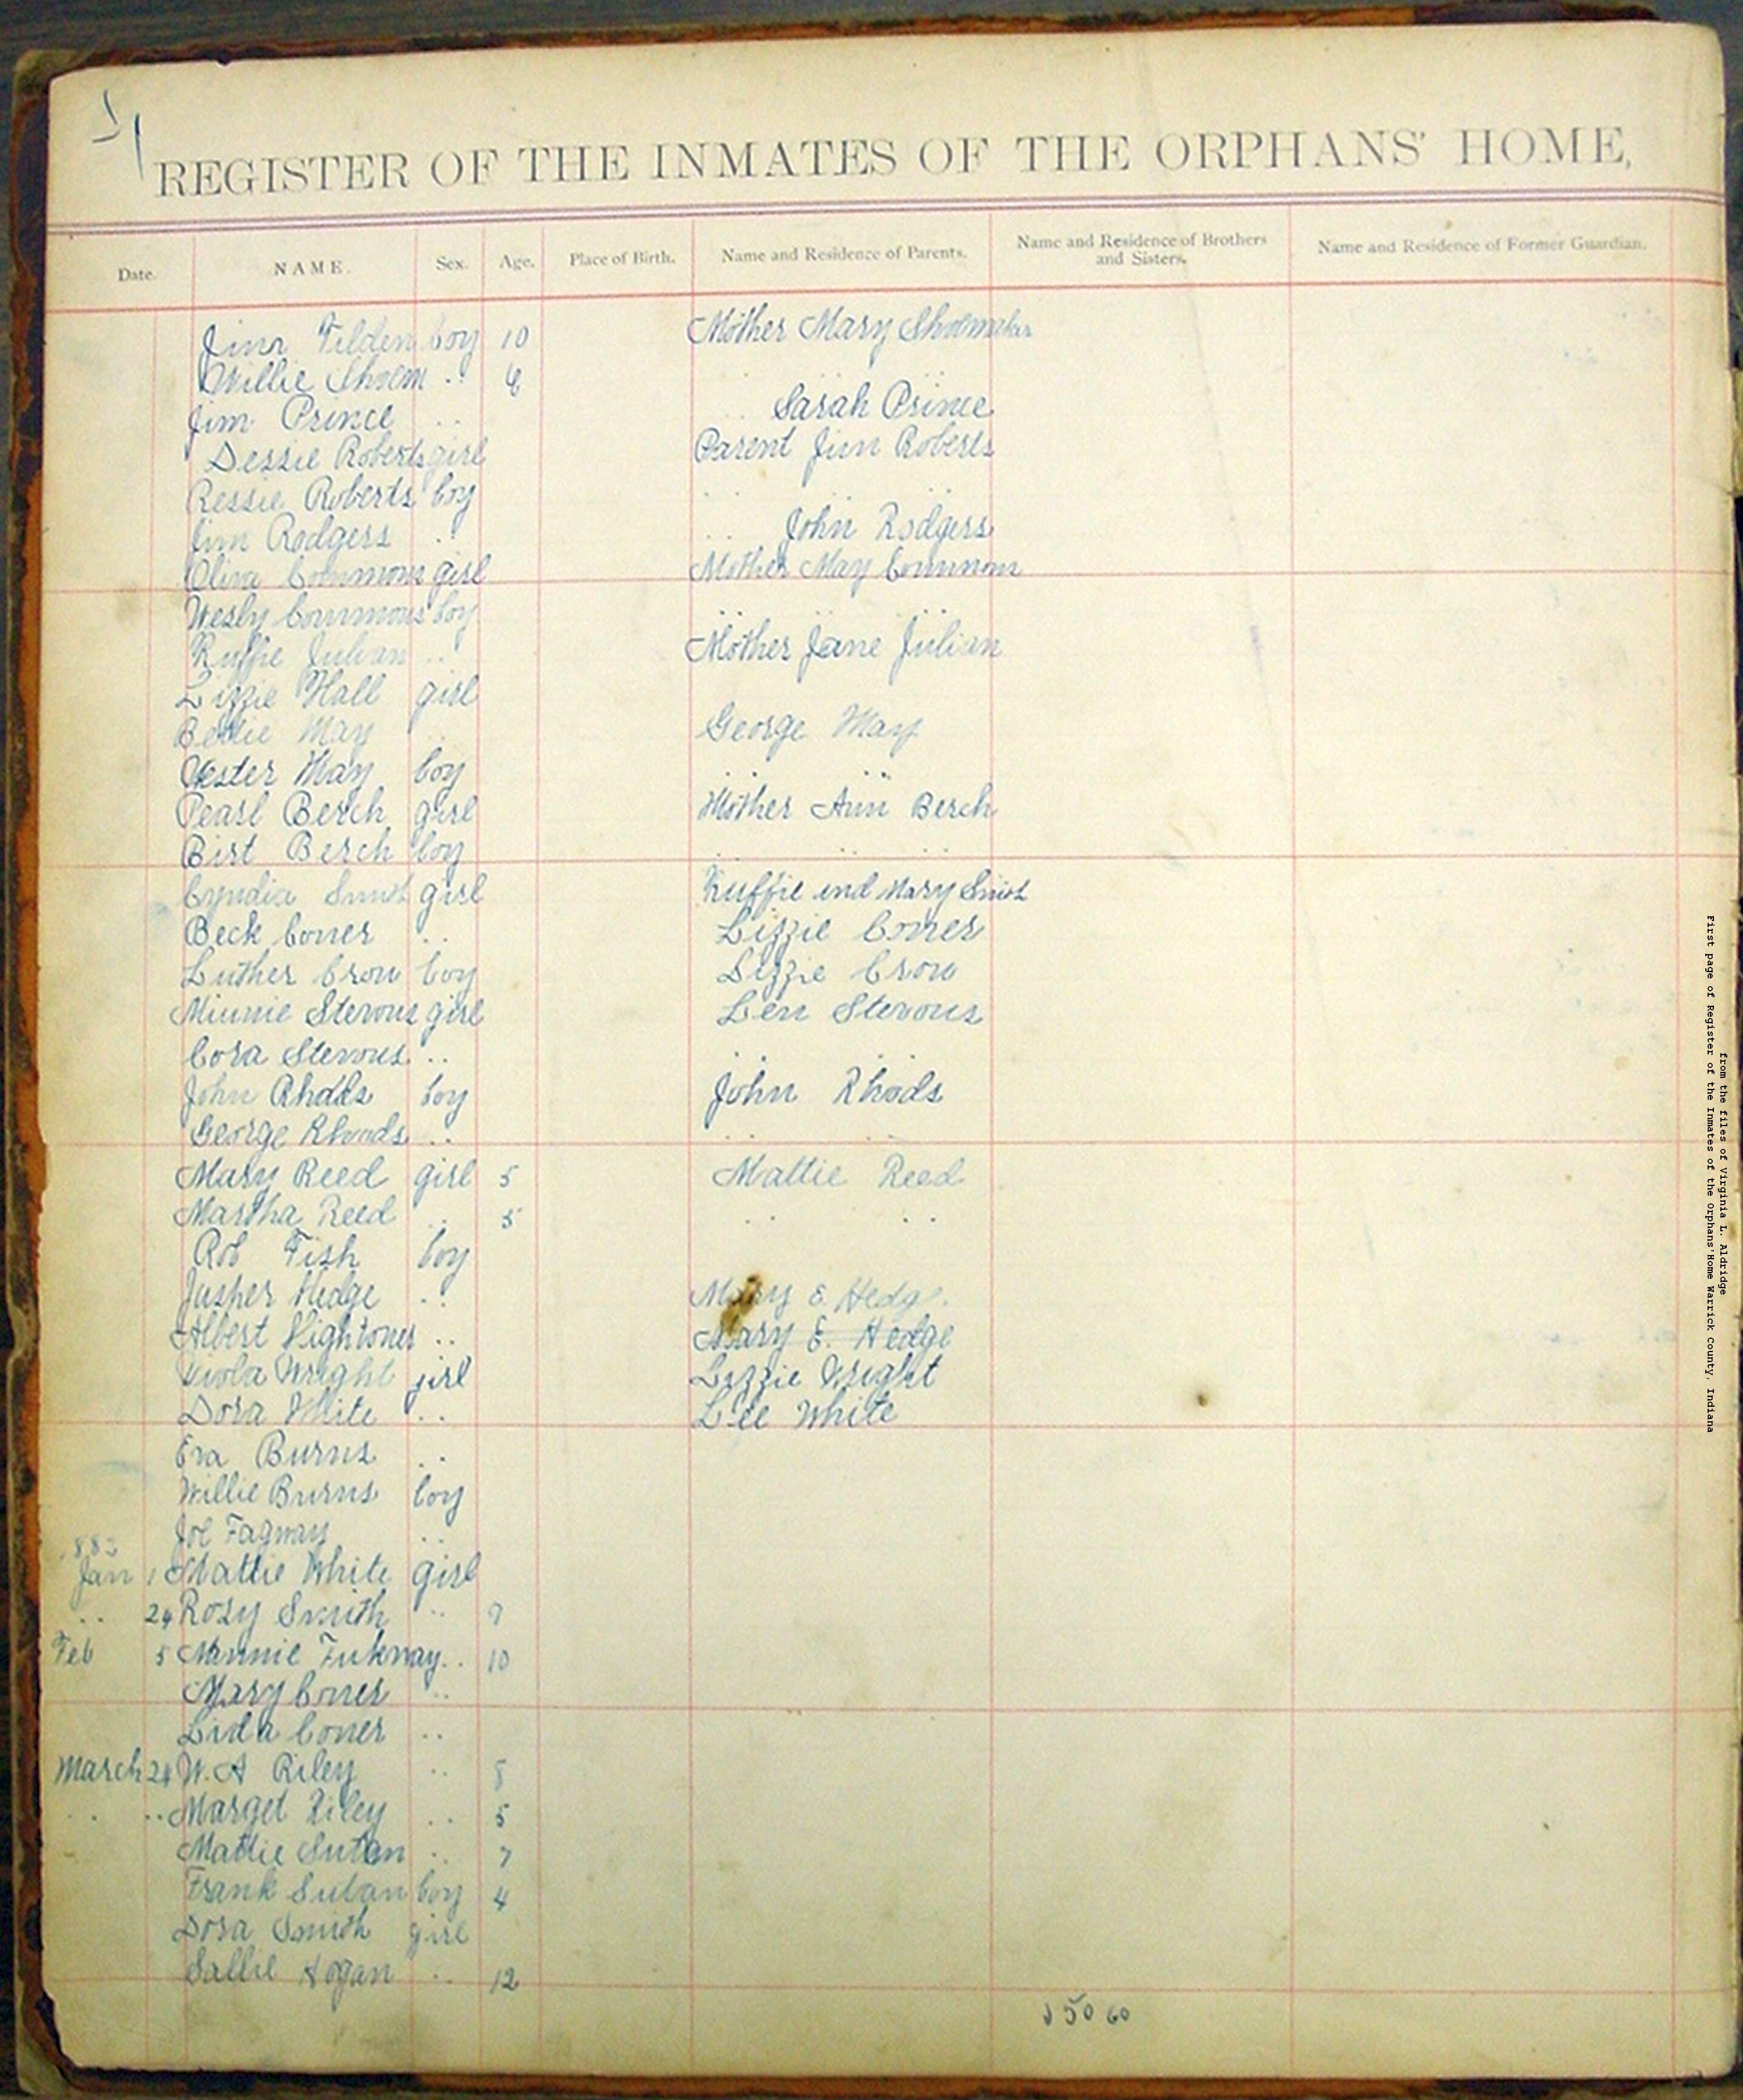 REGISTER OF THE INMATES OF THE ORPHANS' HOME,
Date. NAME. Sex. Age. Place of Birth. Name and Residence of Parents. Name and Residence of Brothers and Sisters. Name and Residence of Former Guardian.
Jim Tilden boy 10 Mother Mary Shoemaker
Willie Shoem .. 6 .. ..
Jim Prince .. .. Sarah Prince
Dessie Roberts girl Parent Jim Roberts
Ressie Roberts boy .. ..
Jim Rodgers .. .. John Rodgers
Oliva Commons girl Mother May Commons
Wesly Commons boy .. ..
Ruffie Julian .. Mother Jane Julian
Lizzie Hall girl
Bertie May .. George May
Vester May boy .. ..
Pearl Berch girl Mother Ann Berch
Birt Berch boy .. .. ..
Cyndia Smith girl Ruffie and Mary Smith
Beck Coner .. Lizzie Coner
Luther Crow boy Lizzie Crow
Minnie Stevons girl Len Stevons
Cora Stevons .. .. ..
John Rhods boy John Rhods
George Rhods .. .. ..
Mary Reed girl 5 Mattie Reed
Martha Reed .. 5 .. ..
Rob Fish boy
Jasper Hedge .. Mary E. Hedge
Albert Hightoner .. Mary E. Hedge
Viola Wright girl Lizzie Wright
Dora White .. Lee White
Eva Burns ..
Willie Burns boy
Joe Fagway ..
Jan 1 Mattie White girl
.. 24 Rosy Smith .. 7
Feb 5 Minnie Fukway .. 10
Mary Coner ..
Lida Coner ..
March 24 W. A Riley .. 8
.. .. Marget Riley .. 5
Mattie Sutan .. 7
Frank Sutan boy 4
Dora Smith girl
Sallie Hogan .. 12
50 60
First page of Register of the Inmates of the Orphans' Home Warrick County, Indiana
from the files of Virginia L. Aldridge